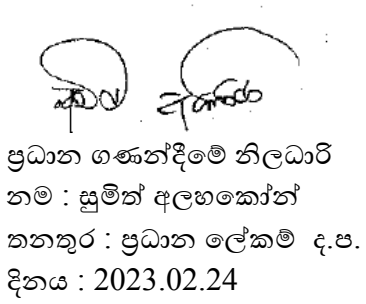 ප්‍රධාන ගණන්දීමේ නිලධාරි
නම : සුමිත් අලහකෝන්
තනතුර : ප්‍රධාන ලේකම්  ද.ප.
දිනය : 2023.02.24